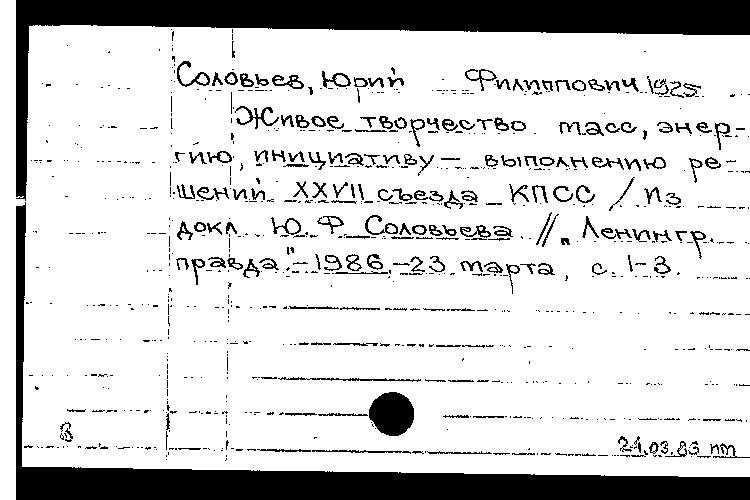 Соловьев, Юрий Филиппович 1925
Живое творчество масс, энер-
гию, инициативу — выполнению ре-
шений XXVII съезда КПСС / Из
докл. Ю. Ф. Соловьева // „Ленингр.
правда." – 1986. – 23 марта, с. 1-3.
В
24.03.86 пт